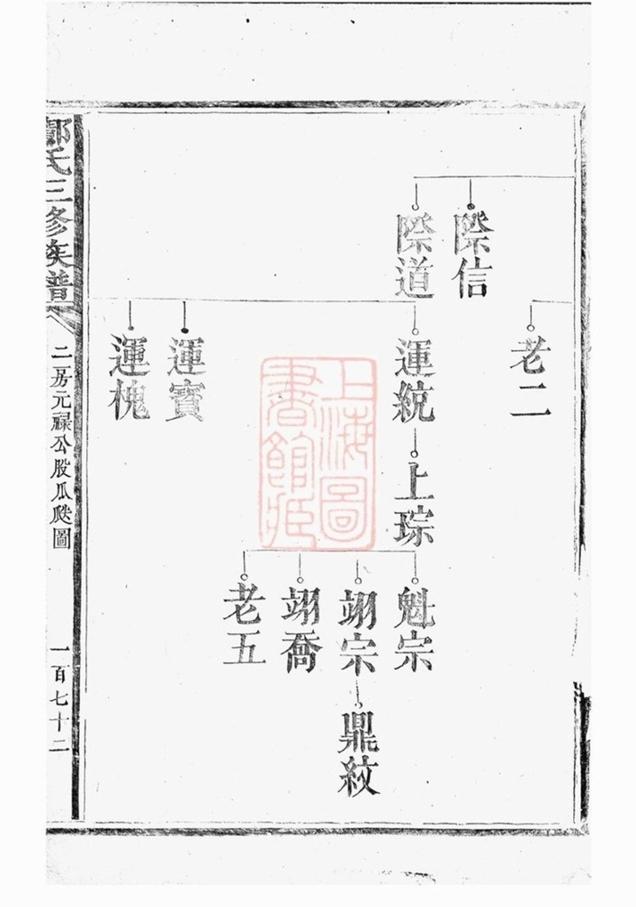 際信
際道
老二
運統
運寶
運槐
上琮
魁宗
翊宗
翊喬
老五
鼎紋
上海圖書館藏
氏三修族譜
二房元祿公股瓜瓞圖
一百七十二